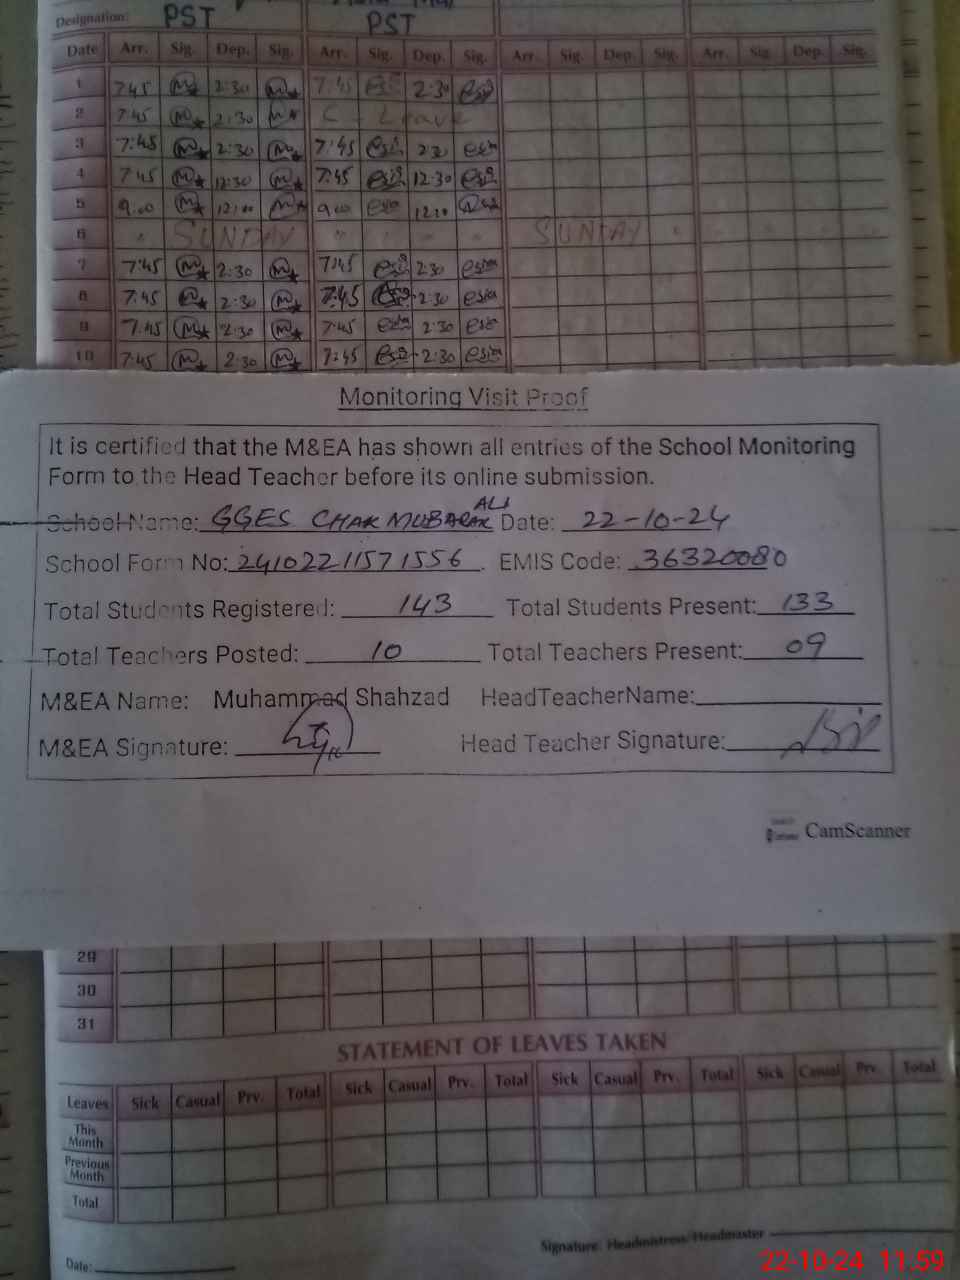 Designation: PST PST
Date Arr. Sig. Dep. Sig. Arr. Sig. Dep. Sig. Arr. Sig. Dep. Sig. Arr. Sig. Dep. Sig.
1 7:45 2:30 7:45 2:30
2 7:45 2:30 C - Leave
3 7:45 2:30 7:45
4 7:45 12:30 7:45 12:30
5 9.00 9.00
6 SUNDAY SUNDAY
7 7:45 2:30 7:45 2:30
8 7:45 2:30 7:45 2:30
9 7:45 2:30 7:45 2:30
10 7:45 2:30 7:45 2:30
Monitoring Visit Proof
It is certified that the M&EA has shown all entries of the School Monitoring
Form to the Head Teacher before its online submission.
School Name: GGES CHAK MUBARAK ALI Date: 22-10-24
School Form No: 2410221157 1556 . EMIS Code: 36320080
Total Students Registered: 143 Total Students Present: 133
Total Teachers Posted: 10 Total Teachers Present: 09
M&EA Name: Muhammad Shahzad HeadTeacherName:
M&EA Signature: Head Teacher Signature:
CamScanner
29
30
31
STATEMENT OF LEAVES TAKEN
Leaves Sick Casual Prv. Total Sick Casual Prv. Total Sick Casual Prv. Total Sick Casual Prv. Total
This Month
Previous Month
Total
Signature: Headmistress/Headmaster
Date:
22-10-24 11:59